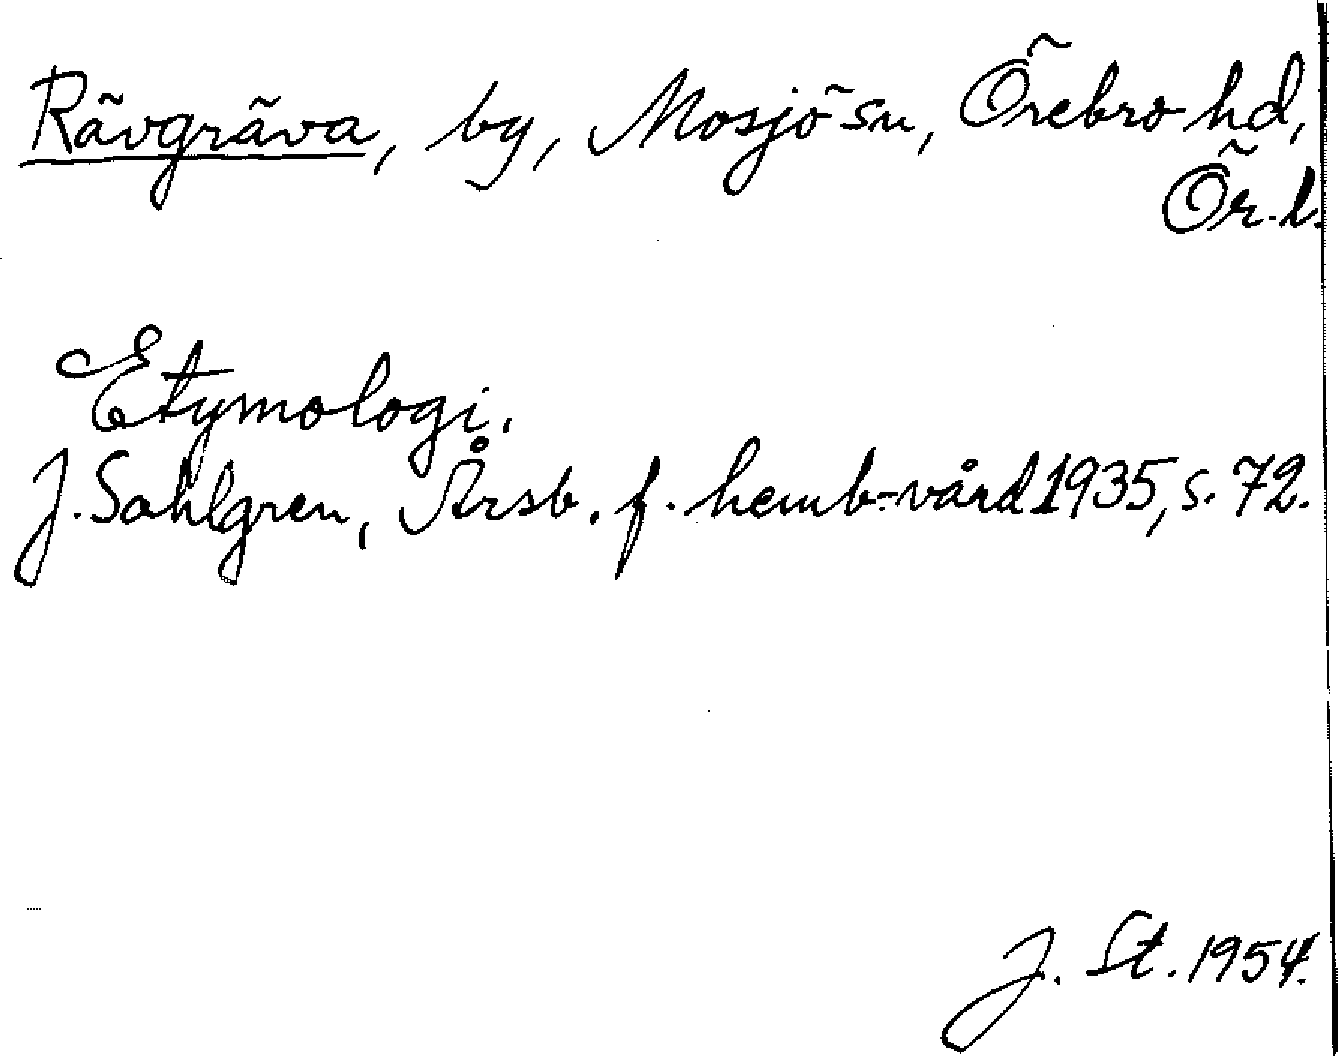 Rävgräva, by, Mosjö sn, Örebro hd,
Ör. l.
Etymologi.
J. Sahlgren, Årsb. f. hemb-vård 1935, s. 72.
J. St. 1954.